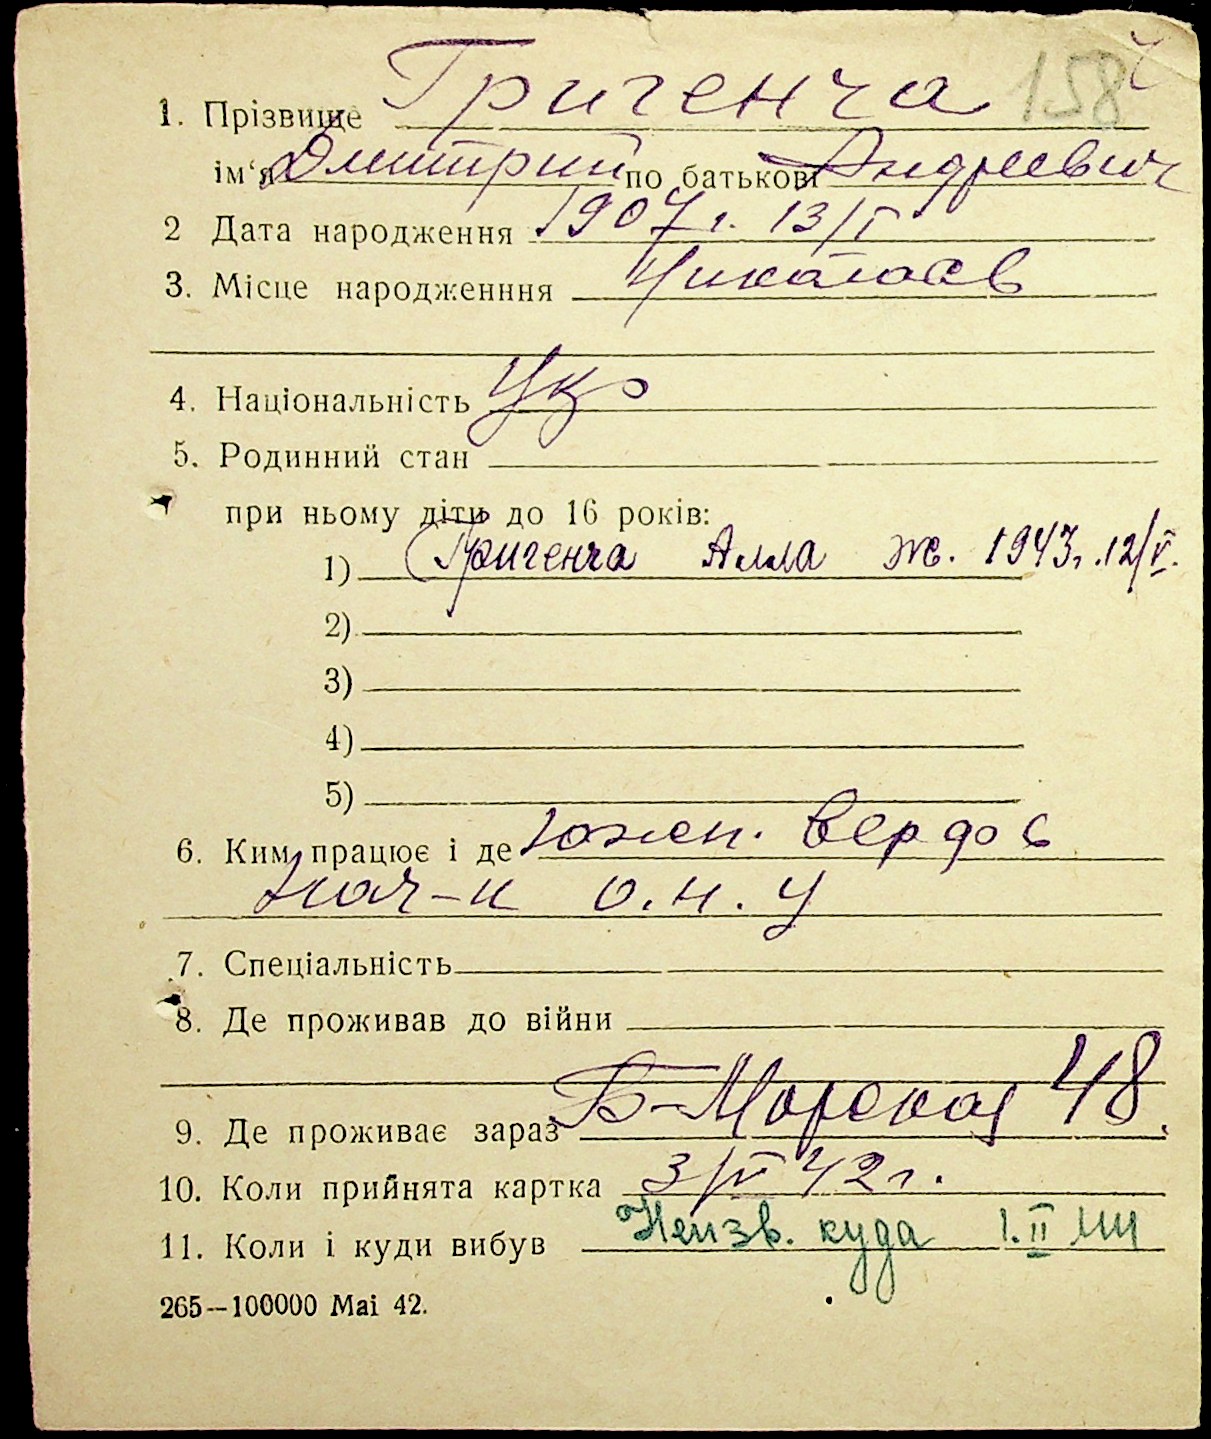 158 ч
1. Прізвище Григенча
ім‘я Дмитрий по батькові Андреевич
2 Дата народження 1907 г. 13/I
3. Місце народженння Николаев
4. Національність Укр
5. Родинний стан
при ньому діти до 16 років:
1) Григенча Алла ж. 1943 г. 12/V.
2)
3)
4)
5)
6. Ким працює і де Южн. Верфь
Нач-к о.н.у
7. Спеціальність
8. Де проживав до війни
9. Де проживає зараз Б-Морская 48.
10. Коли прийнята картка 42 г.
11. Коли і куди вибув Неизв. куда 1.II
265—100000 Mai 42.